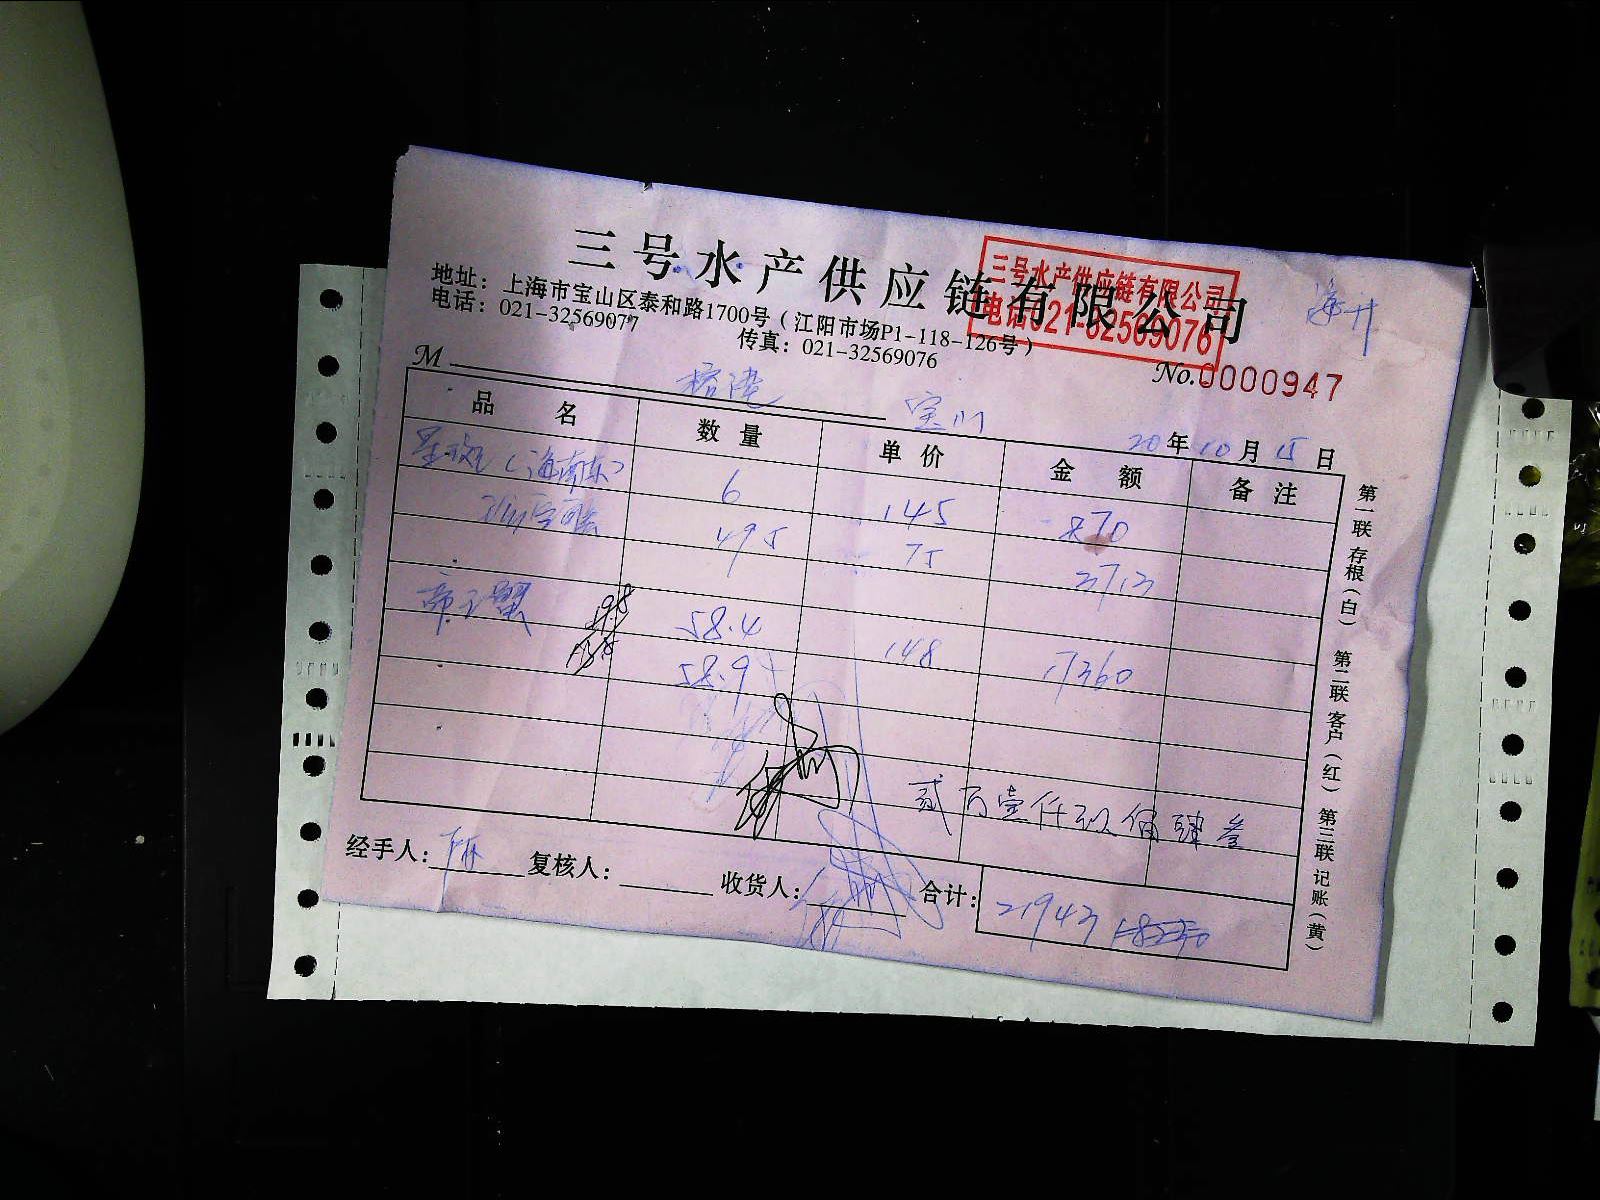 三号水产供应链有限公司
三号水产供应链有限公司
电话021-32569076
地址：上海市宝山区泰和路1700号（江阳市场P1-118-126号）
电话：021-32569077 传真：021-32569076
No.0000947
M
20年10月15日
品名 数量 单价 金额 备注
星斑（海南东） 6 145 870
495 75 3713
帝王蟹 58.4
58.9 148 17360
贰万壹仟玖佰肆叁
经手人： 复核人： 收货人： 合计： 21943
第一联 存根（白） 第二联 客户（红） 第三联 记账（黄）